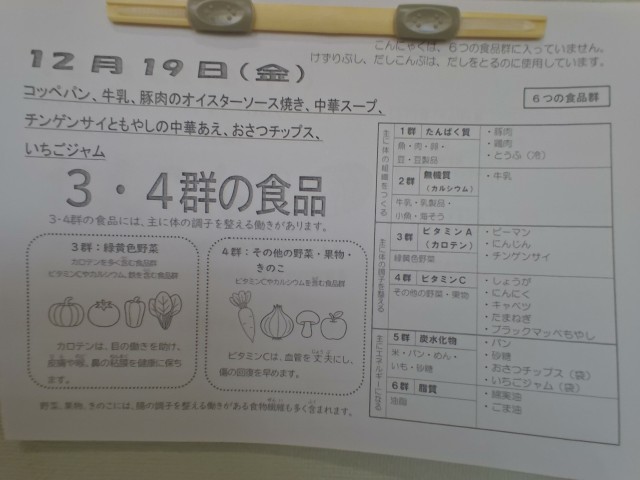 こんにゃくは、6つの食品群に入っていません。
けずりぶし、だしこんぶは、だしをとるのに使用しています。
12月19日(金)
コッペパン、牛乳、豚肉のオイスターソース焼き、中華スープ、
チンゲンサイともやしの中華あえ、おさつチップス、
いちごジャム
3・4群の食品
3・4群の食品には、主に体の調子を整える働きがあります。
3群:緑黄色野菜
カロテンを多く含む食品群
ビタミンCやカルシウム、鉄を含む食品群
カロテンは、目の働きを助け、
皮膚や喉、鼻の粘膜を健康に保ち
ます。
4群:その他の野菜・果物・
きのこ
ビタミンCやカルシウムを含む食品群
ビタミンCは、血管を丈夫にし、
傷の回復を早めます。
野菜、果物、きのこには、腸の調子を整える働きがある食物繊維も多く含まれます。
6つの食品群
主に体の組織をつくる
1群 たんぱく質
魚・肉・卵・
豆・豆製品
・豚肉
・鶏肉
・とうふ(冷)
2群 無機質
(カルシウム)
牛乳・乳製品・
小魚・海そう
・牛乳
主に体の調子を整える
3群 ビタミンA
(カロテン)
緑黄色野菜
・ピーマン
・にんじん
・チンゲンサイ
4群 ビタミンC
その他の野菜・果物
・しょうが
・にんにく
・キャベツ
・たまねぎ
・ブラックマッペもやし
主にエネルギーになる
5群 炭水化物
米・パン・めん・
いも・砂糖
・パン
・砂糖
・おさつチップス(袋)
・いちごジャム(袋)
6群 脂質
油脂
・綿実油
・ごま油